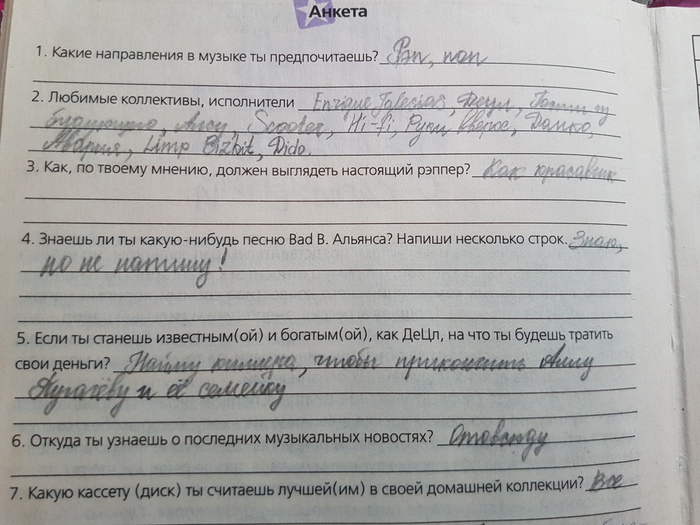 Анкета
1. Какие направления в музыке ты предпочитаешь? Рэп, поп
2. Любимые коллективы, исполнители Enrique Iglesias, Децл, Гости из
будущего, Алсу, Scooter, Hi-fi, Руки вверх, Данко,
Авария, Limp Bizkit, Dido.
3. Как, по твоему мнению, должен выглядеть настоящий рэппер? Как красавчик
4. Знаешь ли ты какую-нибудь песню Bad B. Альянса? Напиши несколько строк. Знаю,
но не напишу!
5. Если ты станешь известным(ой) и богатым(ой), как ДеЦл, на что ты будешь тратить
свои деньги? Найму киллера, чтобы прикончить Аллу
Пугачёву и её семейку
6. Откуда ты узнаешь о последних музыкальных новостях? Отовсюду
7. Какую кассету (диск) ты считаешь лучшей(им) в своей домашней коллекции? Все